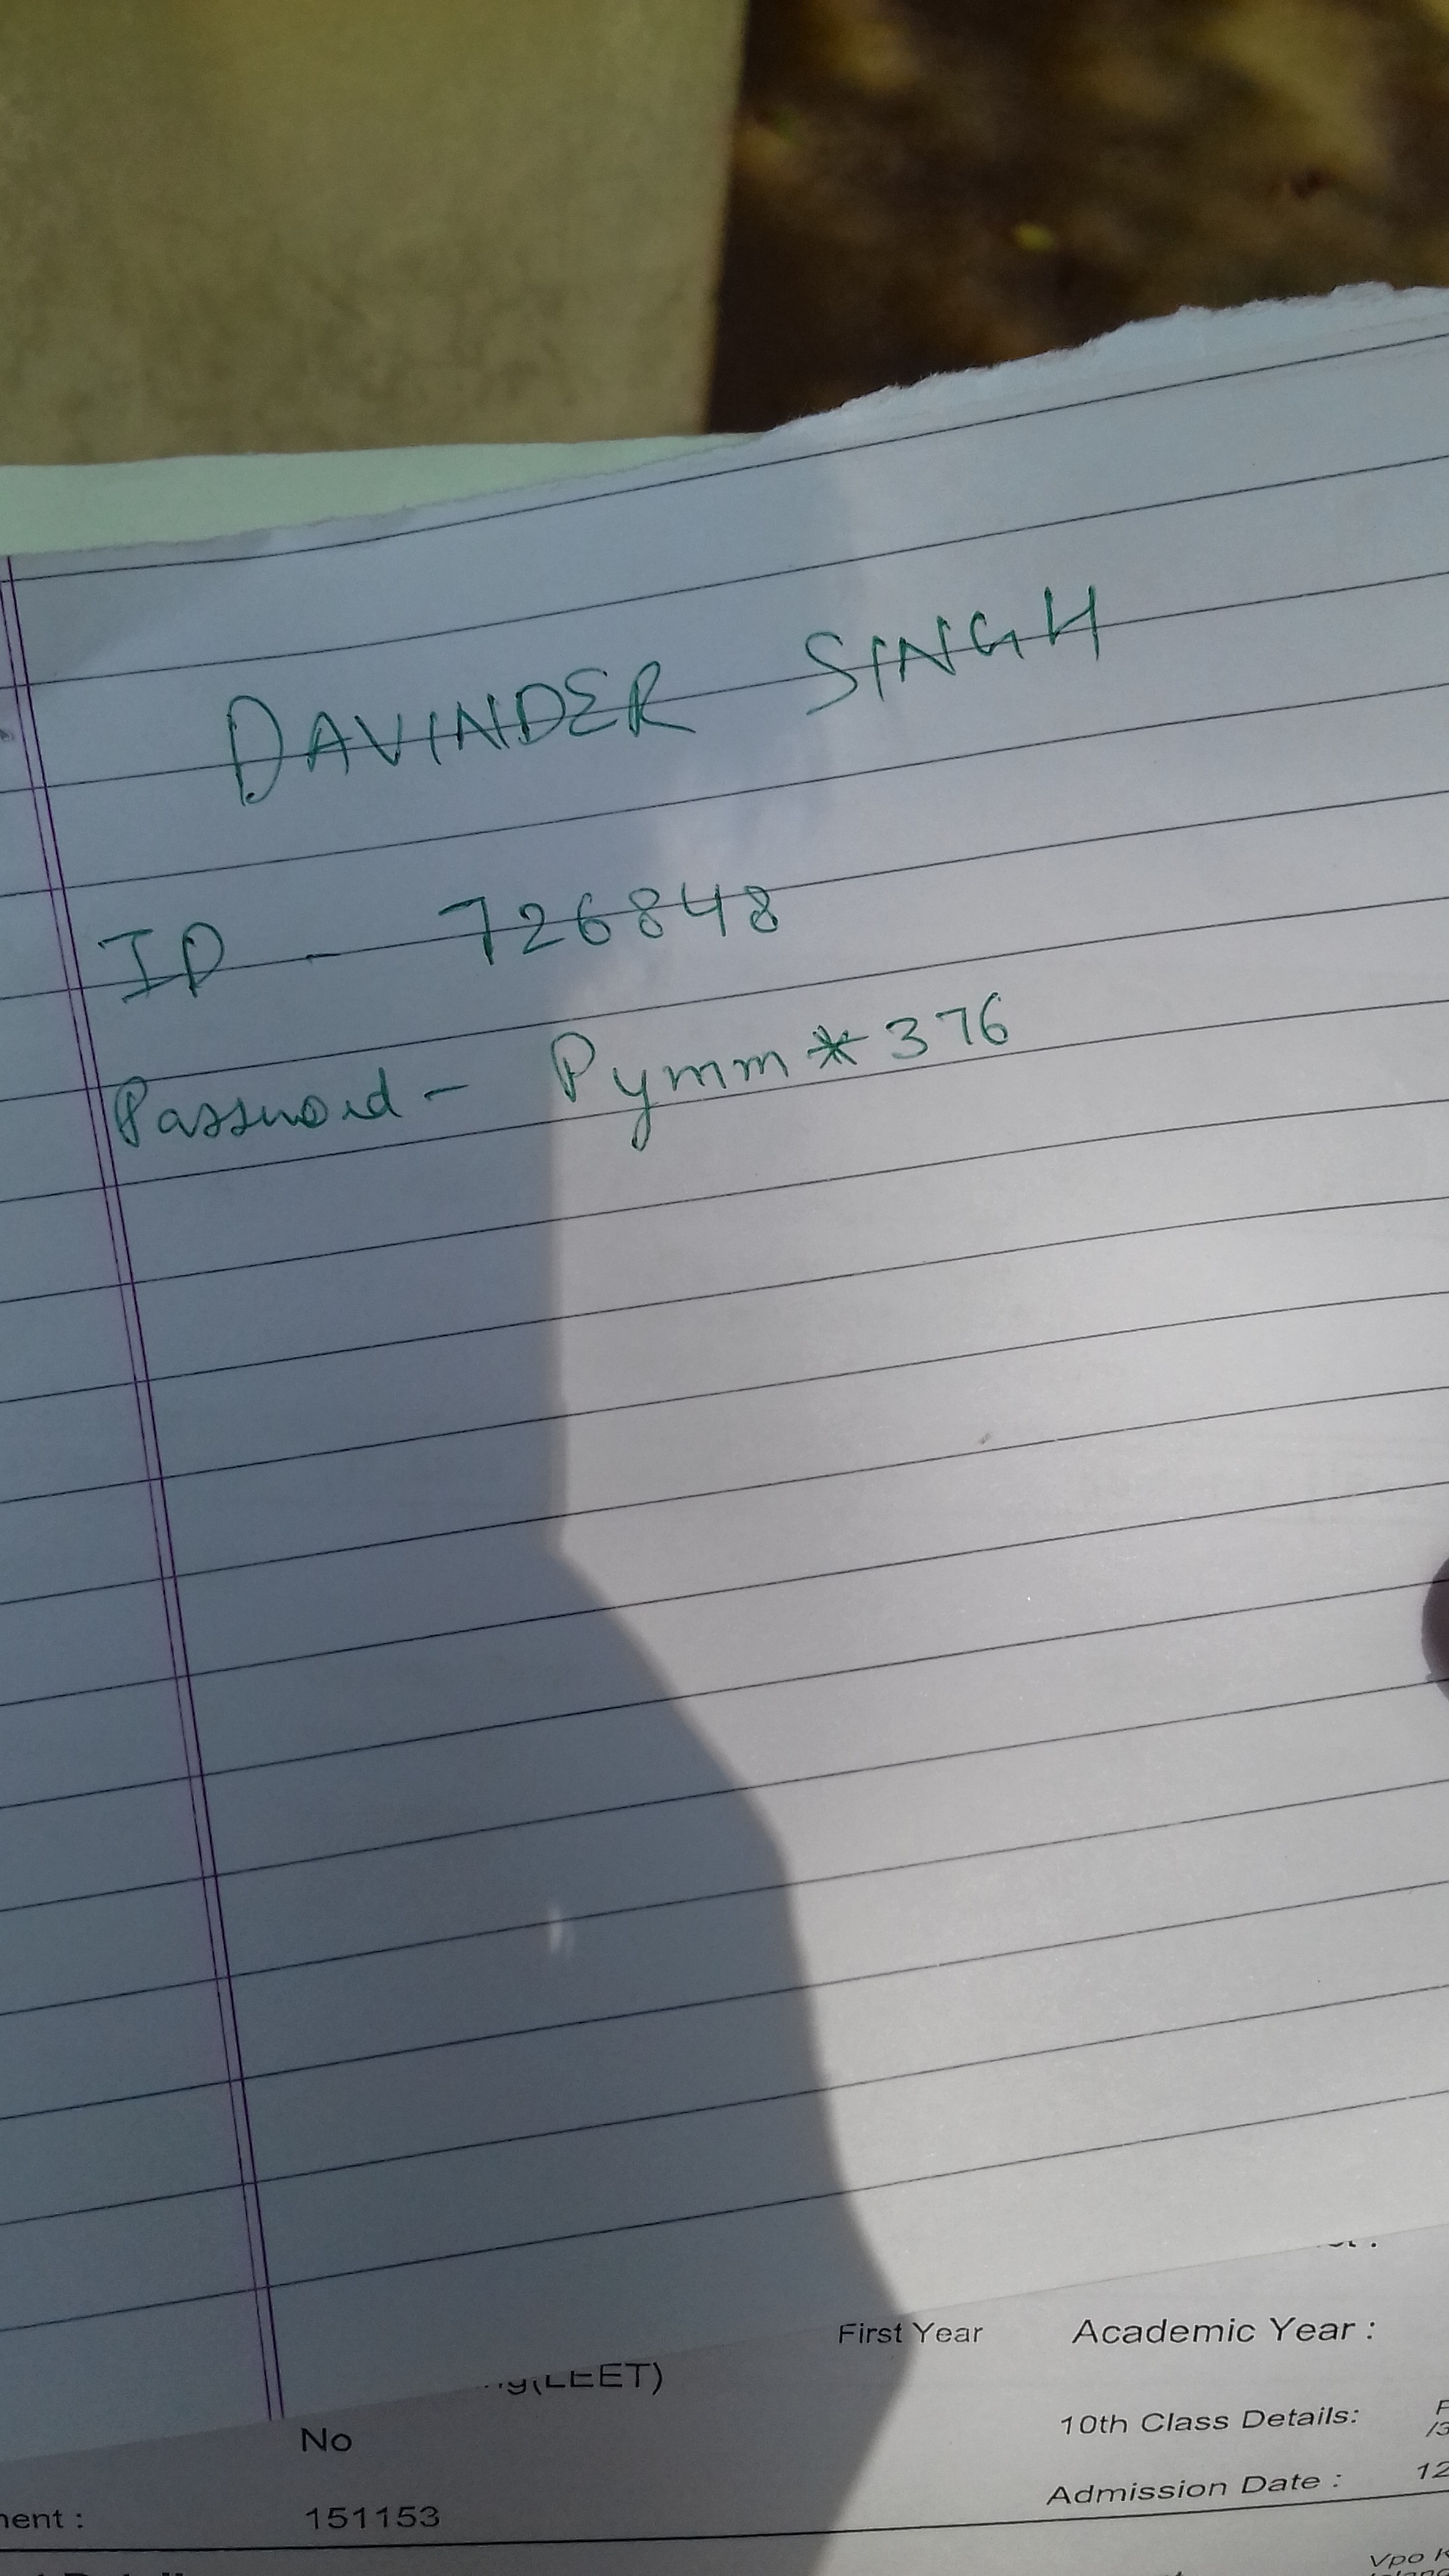 DAVINDER SINGH
ID - 726848
Password - Pynmm*376
First Year Academic Year :
(LEET)
No
10th Class Details:
151153
Admission Date : 12